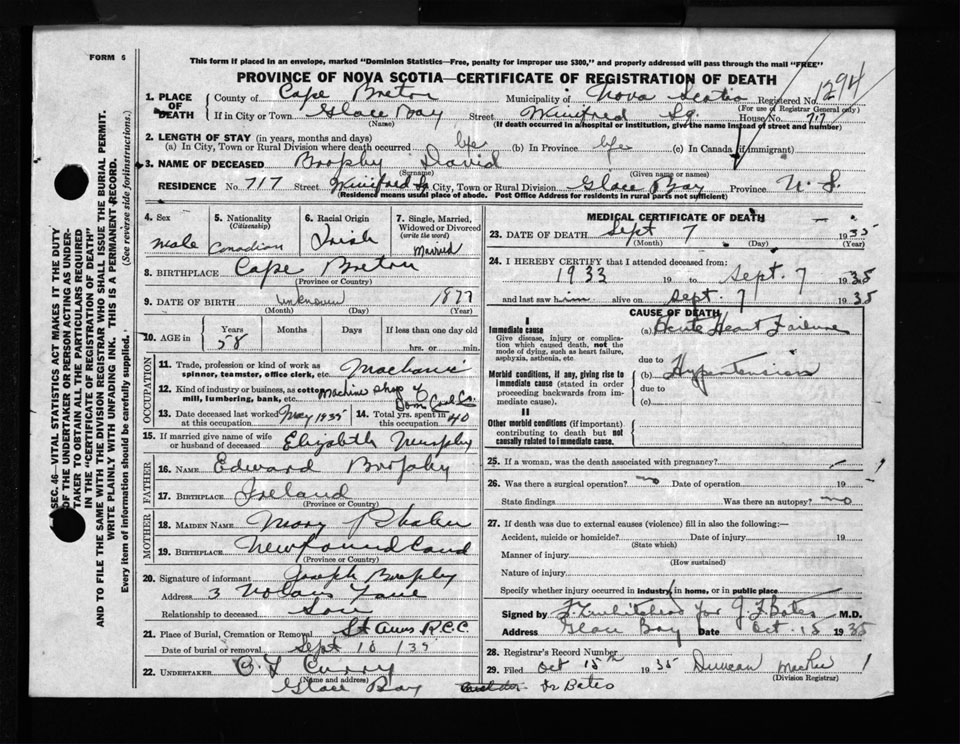 FORM 6
This form if placed in an envelope, marked "Dominion Statistics—Free, penalty for improper use $300," and properly addressed will pass through the mail "FREE"
PROVINCE OF NOVA SCOTIA—CERTIFICATE OF REGISTRATION OF DEATH
1294
1. PLACE OF DEATH County of Cape Breton Municipality of Nova Scotia Registered No.
(For use of Registrar General only)
If in City or Town Glace Bay Street Sq. House No. 717
(Name) (If death occurred in a hospital or institution, give the name instead of street and number)
2. LENGTH OF STAY (in years, months and days)
(a) In City, Town or Rural Division where death occurred life (b) In Province life (c) In Canada (if immigrant)
3. NAME OF DECEASED Brophy David
(Surname) (Given name or names)
RESIDENCE No. 717 Street Sq City, Town or Rural Division Glace Bay Province N. S.
(Residence means usual place of abode. Post Office Address for residents in rural parts not sufficient)
4. Sex Male
5. Nationality (Citizenship) Canadian
6. Racial Origin Irish
7. Single, Married, Widowed or Divorced (write the word) Married
8. BIRTHPLACE Cape Breton
(Province or Country)
9. DATE OF BIRTH Unknown 1877
(Month) (Day) (Year)
10. AGE in Years Months Days If less than one day old
58 hrs. or min.
OCCUPATION
11. Trade, profession or kind of work as spinner, teamster, office clerk, etc. Machanic
12. Kind of industry or business, as cotton mill, lumbering, bank, etc. Machine Shop Dom Coal Co.
13. Date deceased last worked at this occupation May 1935 14. Total yrs. spent in this occupation 40
15. If married give name of wife or husband of deceased Elizabeth Murphy
FATHER
16. NAME Edward Brophy
17. BIRTHPLACE Ireland
(Province or Country)
MOTHER
18. MAIDEN NAME Mary
19. BIRTHPLACE Newfoundland
(Province or Country)
20. Signature of informant Joseph Brophy
Address 3 Nolans Lane
Relationship to deceased Son
21. Place of Burial, Cremation or Removal St Anns R.C.C.
Date of burial or removal Sept 10 / 35
22. UNDERTAKER Curry
(Name and address)
Glace Bay
MEDICAL CERTIFICATE OF DEATH
23. DATE OF DEATH Sept 7 1935
(Month) (Day) (Year)
24. I HEREBY CERTIFY that I attended deceased from:
1933 19 to Sept. 7 1935
and last saw him alive on Sept. 7 1935
CAUSE OF DEATH
I
Immediate cause (a) Acute Heart Failure
Give disease, injury or complication which caused death, not the mode of dying, such as heart failure, asphyxia, asthenia, etc.
due to
Morbid conditions, if any, giving rise to immediate cause (stated in order proceeding backwards from immediate cause).
(b) Hypertension
due to
(c)
II
Other morbid conditions (if important) contributing to death but not causally related to immediate cause.
25. If a woman, was the death associated with pregnancy?
26. Was there a surgical operation? no Date of operation 19
State findings Was there an autopsy? no
27. If death was due to external causes (violence) fill in also the following:—
Accident, suicide or homicide? Date of injury 19
(State which)
Manner of injury
(How sustained)
Nature of injury
Specify whether injury occurred in industry, in home, or in public place
Signed by for J. F. Bates M.D.
Address Glace Bay Date Oct. 15 1935
28. Registrar's Record Number
29. Filed Oct 15th 1935 Duncan MacRae
(Division Registrar)
Dr Bates
SEC. 46—VITAL STATISTICS ACT MAKES IT THE DUTY
OF THE UNDERTAKER OR PERSON ACTING AS UNDER-
TAKER TO OBTAIN ALL THE PARTICULARS REQUIRED
IN THE "CERTIFICATE OF REGISTRATION OF DEATH"
AND TO FILE THE SAME WITH THE DIVISION REGISTRAR WHO SHALL ISSUE THE BURIAL PERMIT.
WRITE PLAINLY WITH UNFADING INK. THIS IS A PERMANENT RECORD.
Every item of information should be carefully supplied. (See reverse side for instructions.)